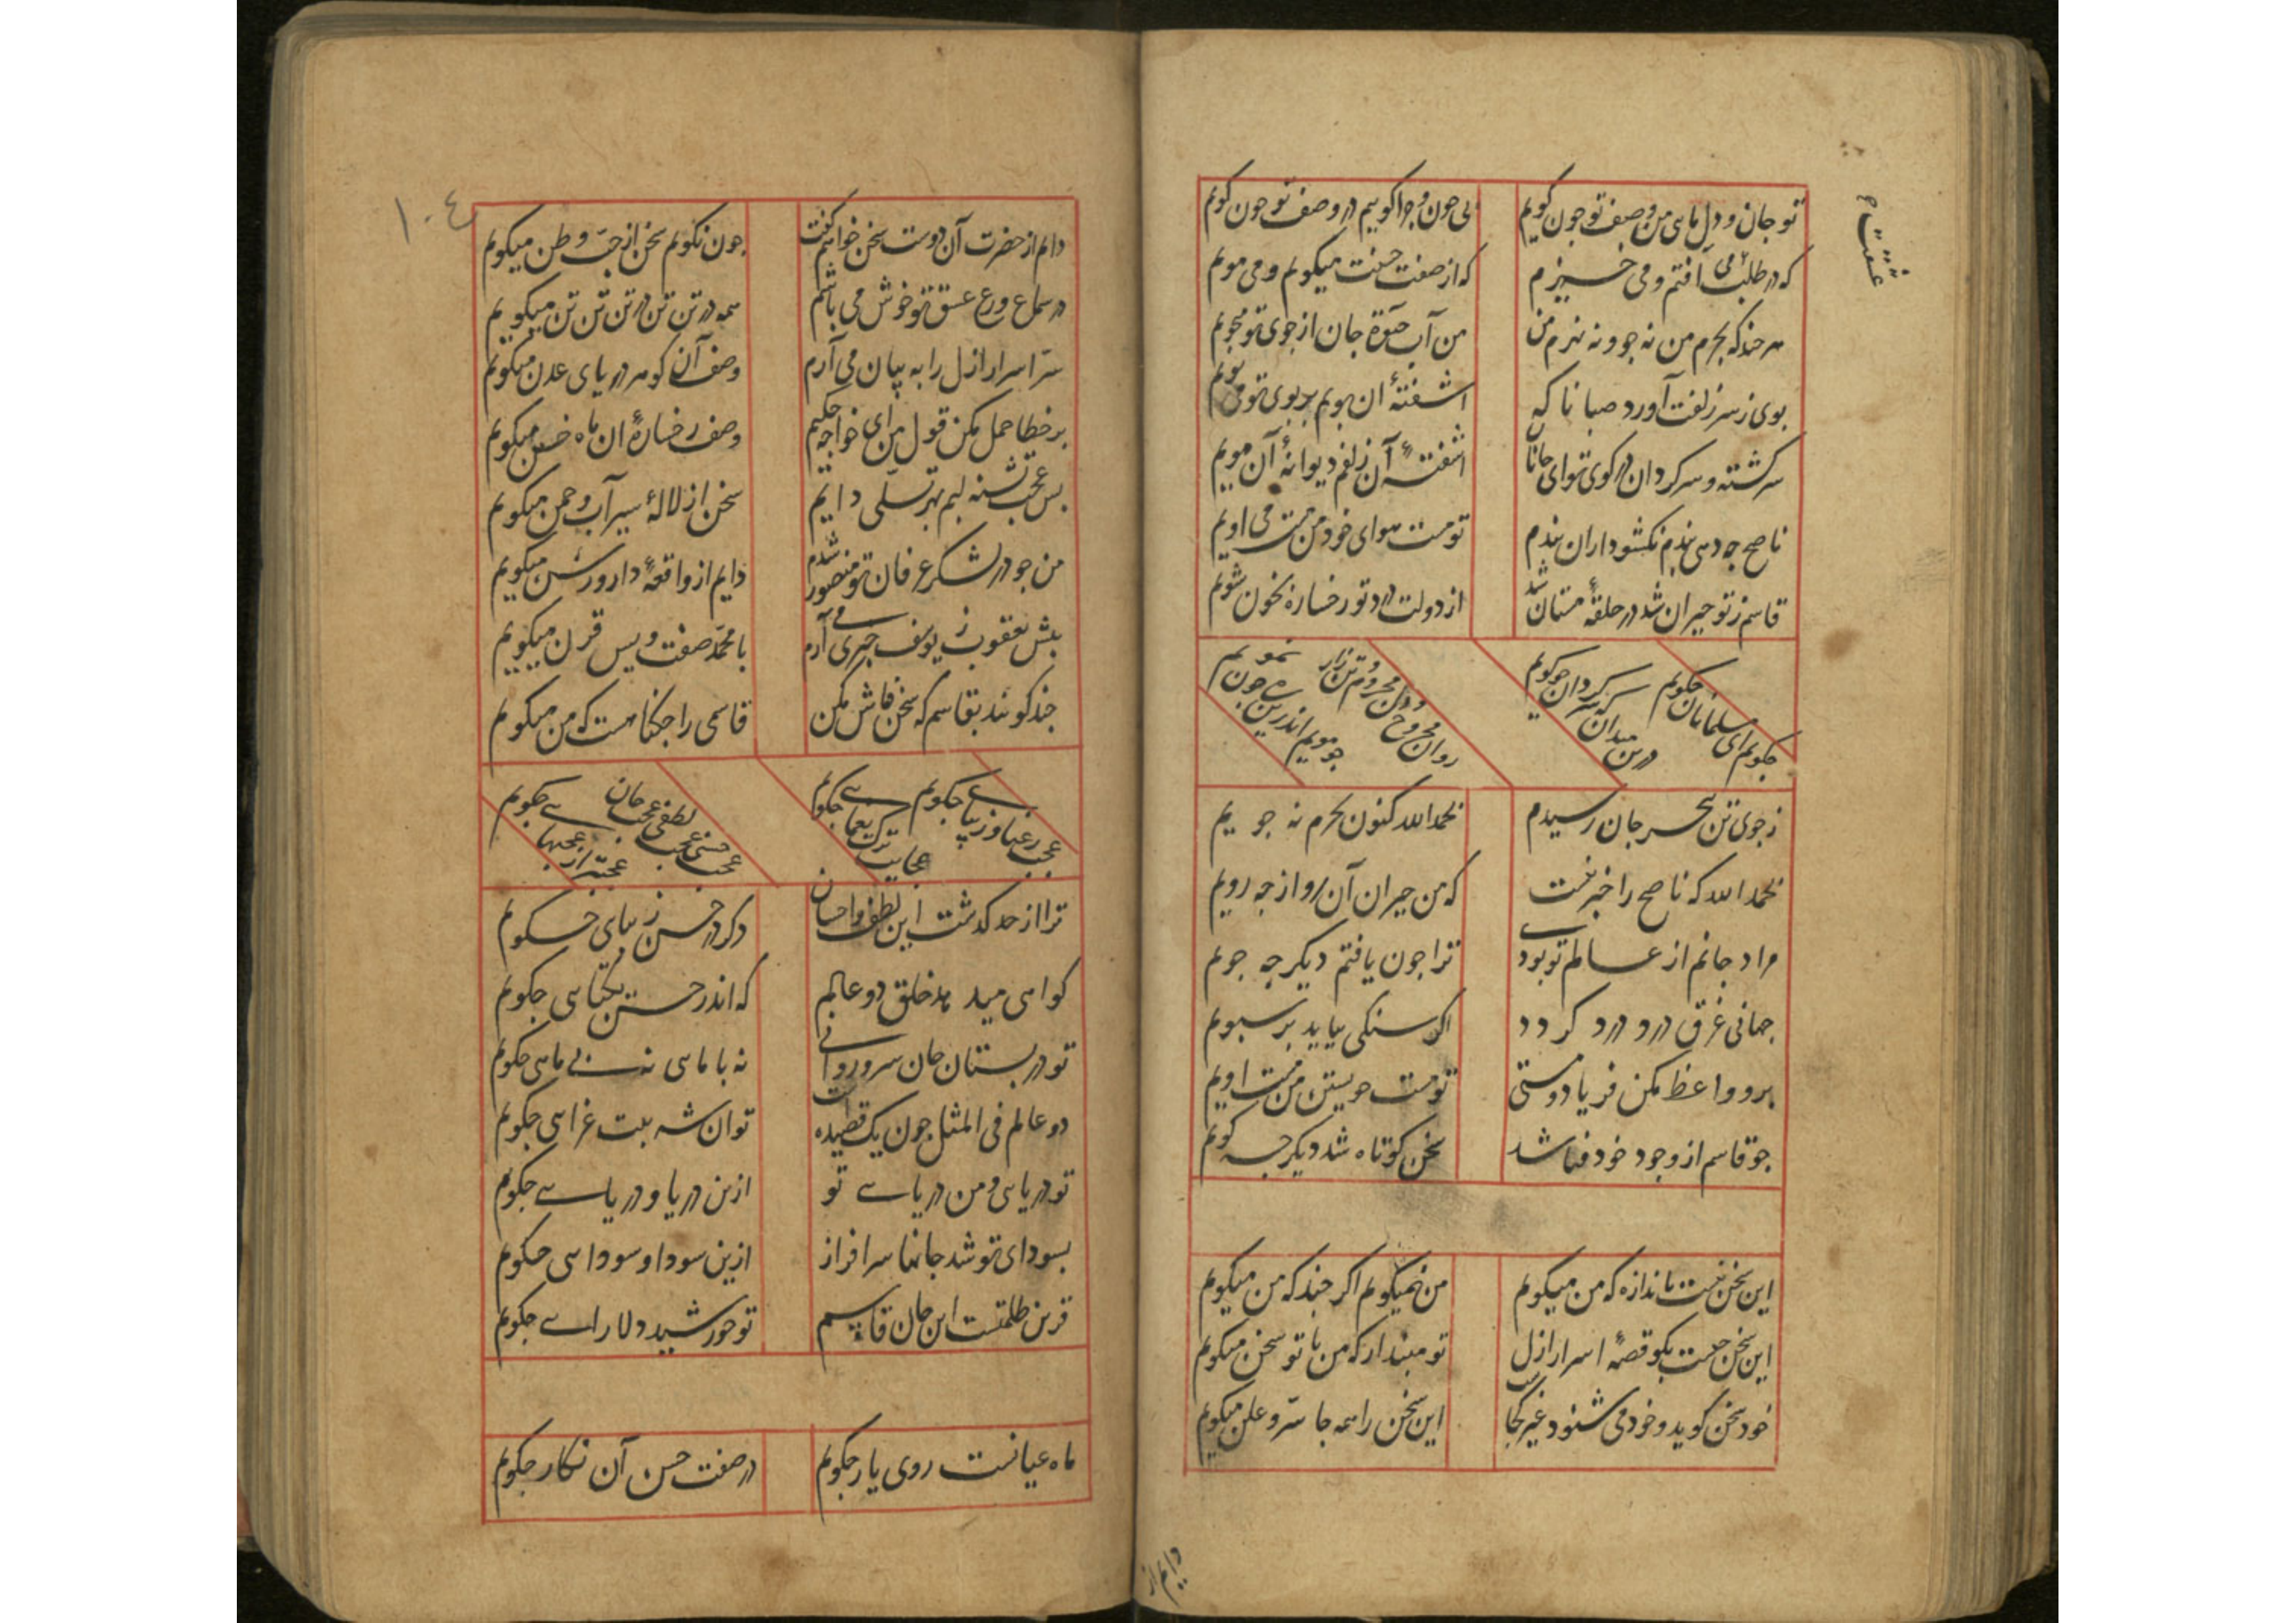 تو جان و دل مایی من وصف تو چون گویم بی چون و چرا گوییم در وصف تو چون گویم
عشقت م
که در طلبت می افتم و می خیزم که از صفت حسنت میگویم و می مویم
هر چند که بحرم من نه جو و نه نهرم من من آب حیوة جان از جوی تو میجویم
بوی ز سر زلفت آورد صبا ناگه آشفته آن بویم بر بوی تو می بویم
سرگشته و سرگردان در کوی تو ای جانا آشفتهٔ آن زلفم دیوانهٔ آن مویم
ناصح چه دهی پندم نگشود از آن بندم تو مست هوای خود من مست می اویم
قاسم ز تو حیران شد در حلقهٔ مستان شد از دولت درد تو رخساره بخون شویم
چگویم ای مسلمانان چگویم درین میدان که سرگردان چو گویم
روان مجروح و دل مجروح و تن زار چو مویم اندرین
ز جوی تن ببحر جان رسیدم بحمدالله کنون بحرم نه جویم
بحمدالله که ناصح را خبر نیست که من حیران آن رو از چه رویم
مراد جانم از عالم تو بودی ترا چون یافتم دیگر چه جویم
جهانی غرق درد درد گردد اگر سنگی بیاید بر سبویم
برو واعظ مکن فریاد و مستی تو مست خویشتن من مست اویم
چو قاسم از وجود خود فنا شد سخن کوتاه شد دیگر چه گویم
این سخن نیست باندازه که من میگویم من نمیگویم اگر چند که من میگویم
این سخن چیست بگو قصهٔ اسرار ازل تو مپندار که من با تو سخن میگویم
خود سخن گوید و خود می شنود غیر کجاست این سخن را همه جا سر و علن میگویم
دایم از
۱۰٤
دایم از حضرت آن دوست سخن خواهم گفت چون نگویم سخن از حب وطن میگویم
در سماع ورع عشق تو خوش می باشم همه در تن تن تن تن تن تن میگویم
سر اسرار ازل را به بیان می آرم وصف آن گوهر دریای عدن میگویم
بر خطا حمل مکن قول من ای خواجه حکیم وصف رخسارهٔ آن ماه ختن میگویم
بس عجب تشنه لبم بهر تسلی دایم سخن از لالهٔ سیراب و چمن میگویم
من چو در لشکر عرفان تو منصور شدم دایم از واقعهٔ دار و رسن میگویم
پیش یعقوب ز یوسف خبری می آرم با محمد صفت ویس قرن میگویم
چند گویند بقاسم که سخن فاش مکن قاسمی را چه گناهست که من میگویم
عجب رعنا و زیبایی چگویم عجایب ترک یغمایی چگویم
عجب حسنی عجب لطفی عجب جان عجبتر از عجبهایی چگویم
ترا از حد گذشت این لطف و احسان دگر در حسن زیبای چگویم
گواهی میدهد خلق دو عالم که اندر حسن یکتایی چگویم
تو در بستان جان سرو روانی نه با مایی نه بی مایی چگویم
دو عالم فی المثل چون یک قصیده است تو آن شه بیت غرایی چگویم
تو دریایی و من دریای تو ازین دریا و دریایی چگویم
بسودای تو شد جانها سرافراز ازین سودا و سودایی چگویم
قرین ظلمتست این جان قاسم تو خورشید دلارایی چگویم
ماه عیانست روی یار چگویم در صفت حسن آن نگار چگویم